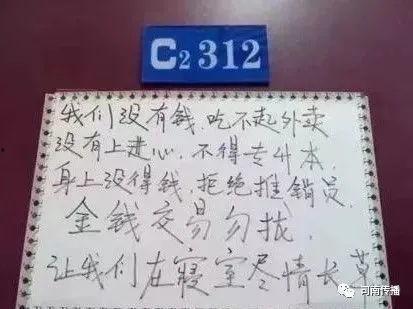 C2 312
我们没有钱.吃不起外卖
没有上进心.不得专升本.
身上没得钱,拒绝推销员.
金钱交易勿扰.
让我们在寝室尽情长草
河南传播